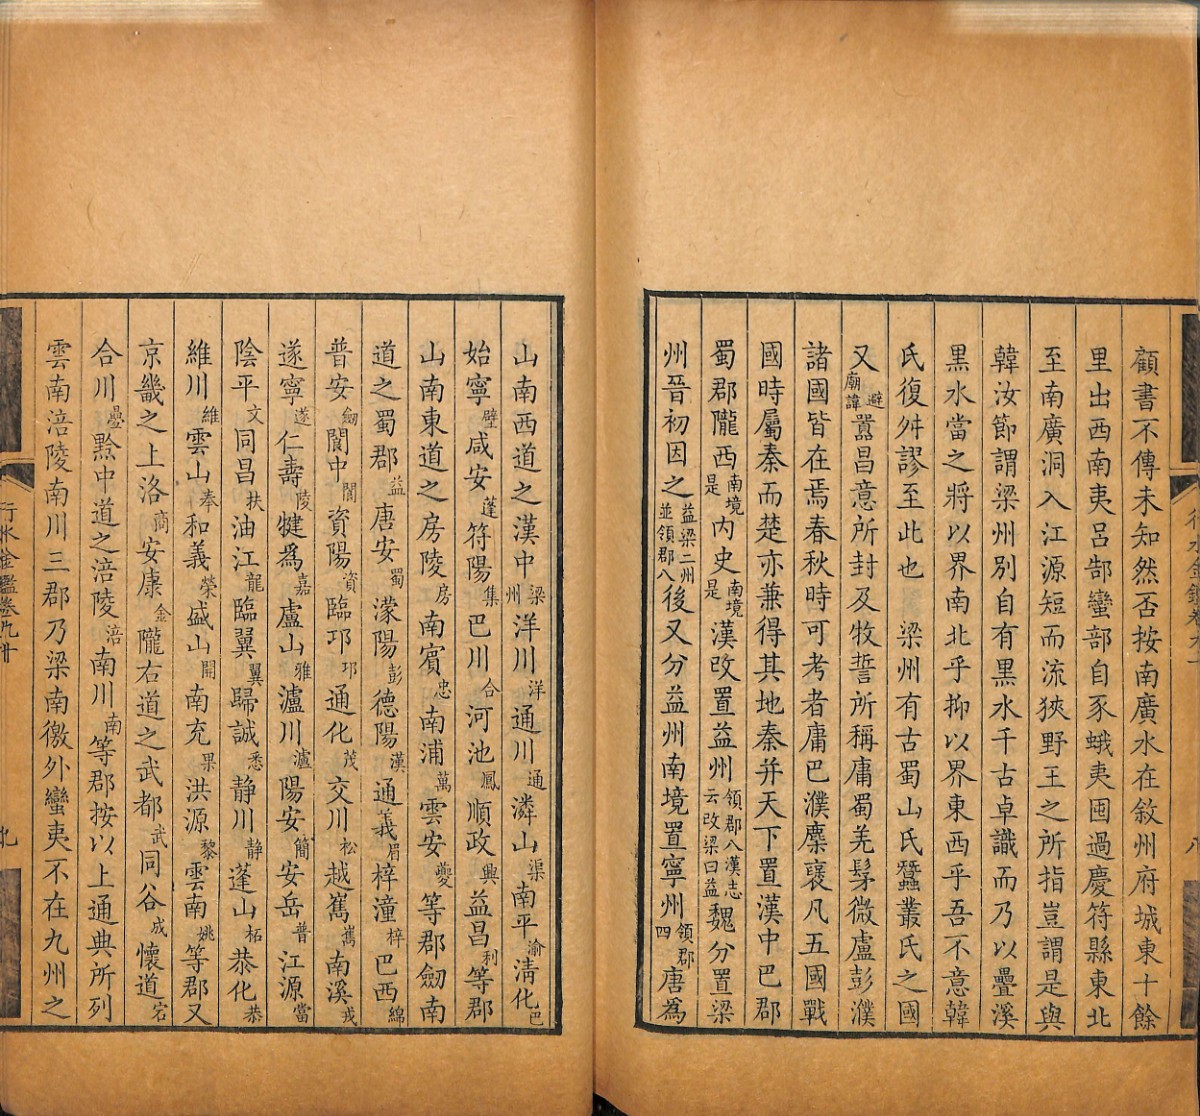 顧書不傳未知然否按南廣水在敘州府城東十餘
里出西南夷呂郜蠻部自豕蛾夷囤過慶符縣東北
至南廣洞入江源短而流狹野王之所指豈謂是與
韓汝節謂梁州別自有黑水千古卓識而乃以疊溪
黑水當之將以界南北乎抑以界東西乎吾不意韓
氏復舛謬至此也 梁州有古蜀山氏蠶叢氏之國
又避廟諱囂昌意所封及牧誓所稱庸蜀羌髳微盧彭濮
諸國皆在焉春秋時可考者庸巴濮麇襃凡五國戰
國時屬秦而楚亦兼得其地秦并天下置漢中巴郡
蜀郡隴西南境是內史南境是漢改置益州領郡八漢志云改梁曰益魏分置梁
州晉初因之益梁二州並領郡八後又分益州南境置寧州領郡四唐為
山南西道之漢中梁州洋川洋通川通潾山渠南平渝清化巴
始寧壁咸安蓬符陽集巴川合河池鳳順政興益昌利等郡
山南東道之房陵房南賓忠南浦萬雲安夔等郡劒南
道之蜀郡益唐安蜀濛陽彭德陽漢通義眉梓潼梓巴西綿
普安劒閬中閬資陽資臨邛邛通化茂交川松越嶲嶲南溪戎
遂寧遂仁壽陵犍為嘉盧山雅瀘川瀘陽安簡安岳普江源當
陰平文同昌扶油江龍臨翼翼歸誠悉静川静蓬山柘恭化恭
維川維雲山奉和義榮盛山開南充果洪源黎雲南姚等郡又
京畿之上洛商安康金隴右道之武都武同谷成懷道宕
合川疊黔中道之涪陵涪南川南等郡按以上通典所列
雲南涪陵南川三郡乃梁南徼外蠻夷不在九州之